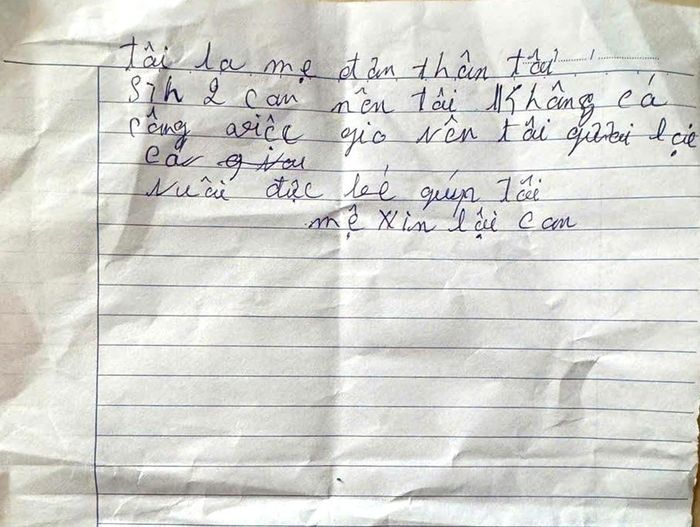 tôi la mẹ đơn thân tôi
Sih 2 con nên tôi không có
công việc gio nên tôi gửi lại
nuôi được bé giúp tôi
mẹ xin lỗi con